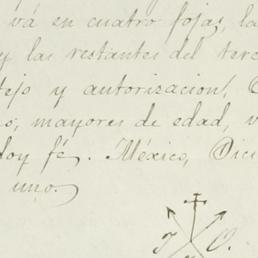 vá en cuatro fojas, la
y las restantes del terc
tejo y autorizacion,
os, mayores de edad, v
doy fé. México, Dici
uno.
J O.